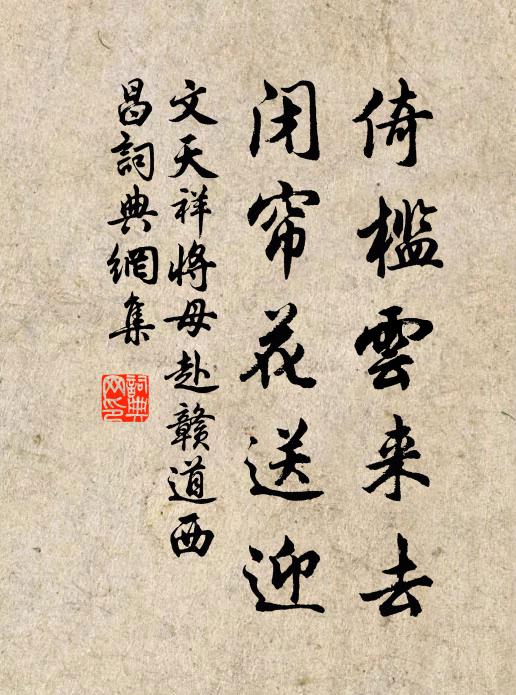 倚槛雲来去
闭帘花送迎
文天祥将母赴赣道西
昌詞典網集
詞典网印